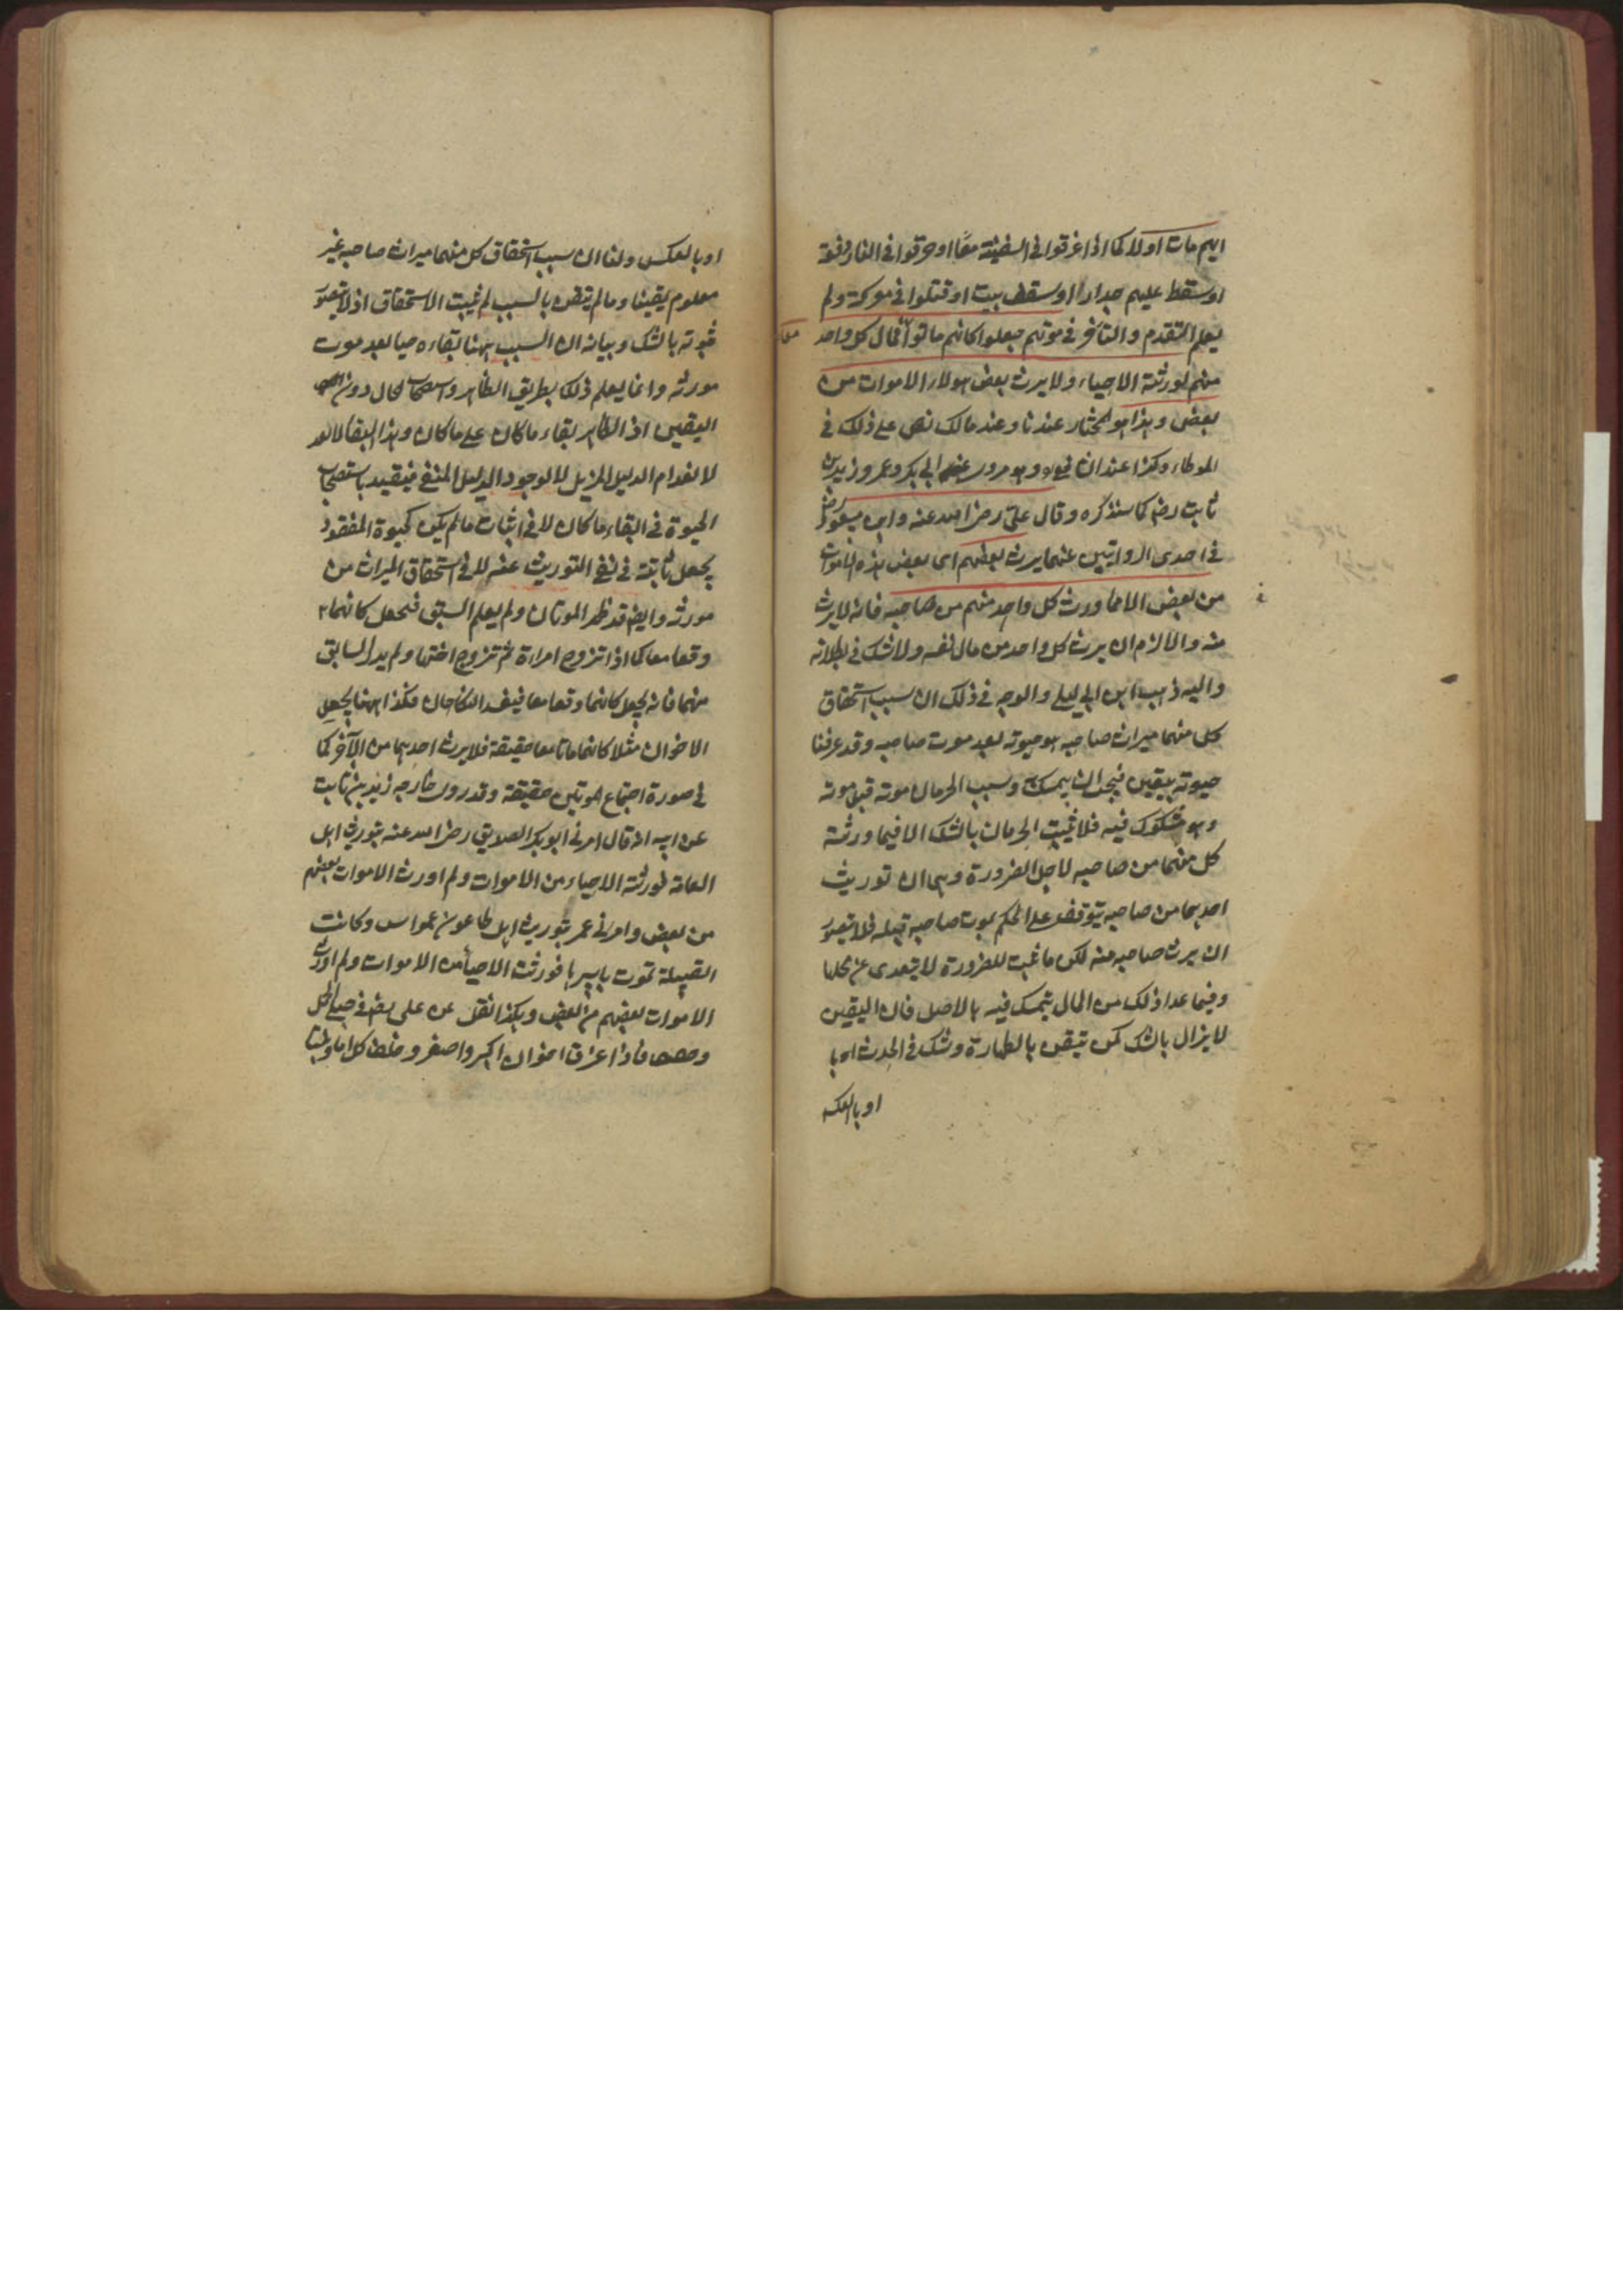 ايهم مات اولا كما اذا غرقوا في السفينة معا او حرقوا في النار دفعة
او سقط عليهم جدار او سقف بيت او قتلوا في معركة ولم
يعلم التقدم والتاخر في موتهم جعلوا كانهم ماتوا فمال كل واحد
معا
منهم لورثته الاحياء ولا يرث بعض هولاء الاموات من
بعض وهذا هو المختار عندنا وعند مالك نص على ذلك في
الموطاء وكذا عند الشافعي وهو مروى عن ابي بكر وعمر وزيد بن
ثابت رضه كما سنذكره وقال علي رضى الله عنه وابن مسعود رض
في احدى الروايتين عنهما يرث بعضهم اى بعض هذه الاموات
من بعض الا مما ورث كل واحد منهم من صاحبه فانه لا يرث
منه والا لزم ان يرث كل واحد من مال نفسه ولا شك في بطلانه
واليه ذهب ابن ابي ليلى والوجه في ذلك ان سبب استحقاق
كل منهما ميراث صاحبه هو حيوته بعد موت صاحبه وقد عرفنا
حيوته بيقين فيجب ان يتمسك وسبب الحرمان موته قبل موته
وهو مشكوك فيه فلا يثبت الحرمان بالشك الا فيما ورثه
كل منهما من صاحبه لاجل الضرورة وهى ان توريث
احدهما من صاحبه يتوقف على الحكم بموت صاحبه قبله فلا يتصور
ان يرث صاحبه منه لكن ما ثبت للضرورة لا يتعدى عن محلها
وفيما عدا ذلك من المال يتمسك فيه بالاصل فان اليقين
لا يزال بالشك كمن تيقن بالطهارة وشك في الحدث او با
او بالعكس
او بالعكس ولنا ان سبب استحقاق كل منهما ميراث صاحبه غير
معلوم يقينا وما لم يتيقن بالسبب لم يثبت الاستحقاق اذ لا يتصور
ثبوته بالشك وبيانه ان السبب ههنا بقاءه حيا بعد موت
مورثه وانما يعلم ذلك بطريق الظاهر واستصحاب الحال دون
اليقين اذ الظاهر بقاء ما كان على ما كان وهذا البقا لا
لانعدام الدليل المزيل لا لوجود الدليل المنفى فيتقيد باستصحاب
الحيوة في البقاء ما كان لا في اثبات ما لم يكن كحيوة المفقود
يجعل ثابتة في نفى التوريث عنه لا في استحقاق الميراث من
مورثه وايضا قد ظهر الموتان ولم يعلم السبق فيجعل كانهما
وقعا معا كما اذا تزوج امراءة ثم تزوج اختها ولم يدر السابق
منهما فانه يجعل كانهما وقعا معا فيفسد النكاحان فكذا ههنا يجعل
الاخوان مثلا كانهما ماتا معا حقيقة فلا يرث احدهما من الآخر كما
في صورة اجتماع الموتين حقيقة وقد روى خارجه زيد بن ثابت
عن ابيه انه قال امرنى ابو بكر الصديق رضى الله عنه بتوريث اهل
اليمامة فورثت الاحياء من الاموات ولم اورث الاموات بعضهم
من بعض وامرنى عمر بتوريث اهل طاعون عمواس وكانت
القبيلة تموت باسرها فورثت الاحيأ من الاموات ولم اورث
الاموات بعضهم من بعض وهكذا نقل عن على رضه في قتلى الجمل
وصفين فاذا غرق اخوان اكبر واصغر وخلف كل اما وبنتا